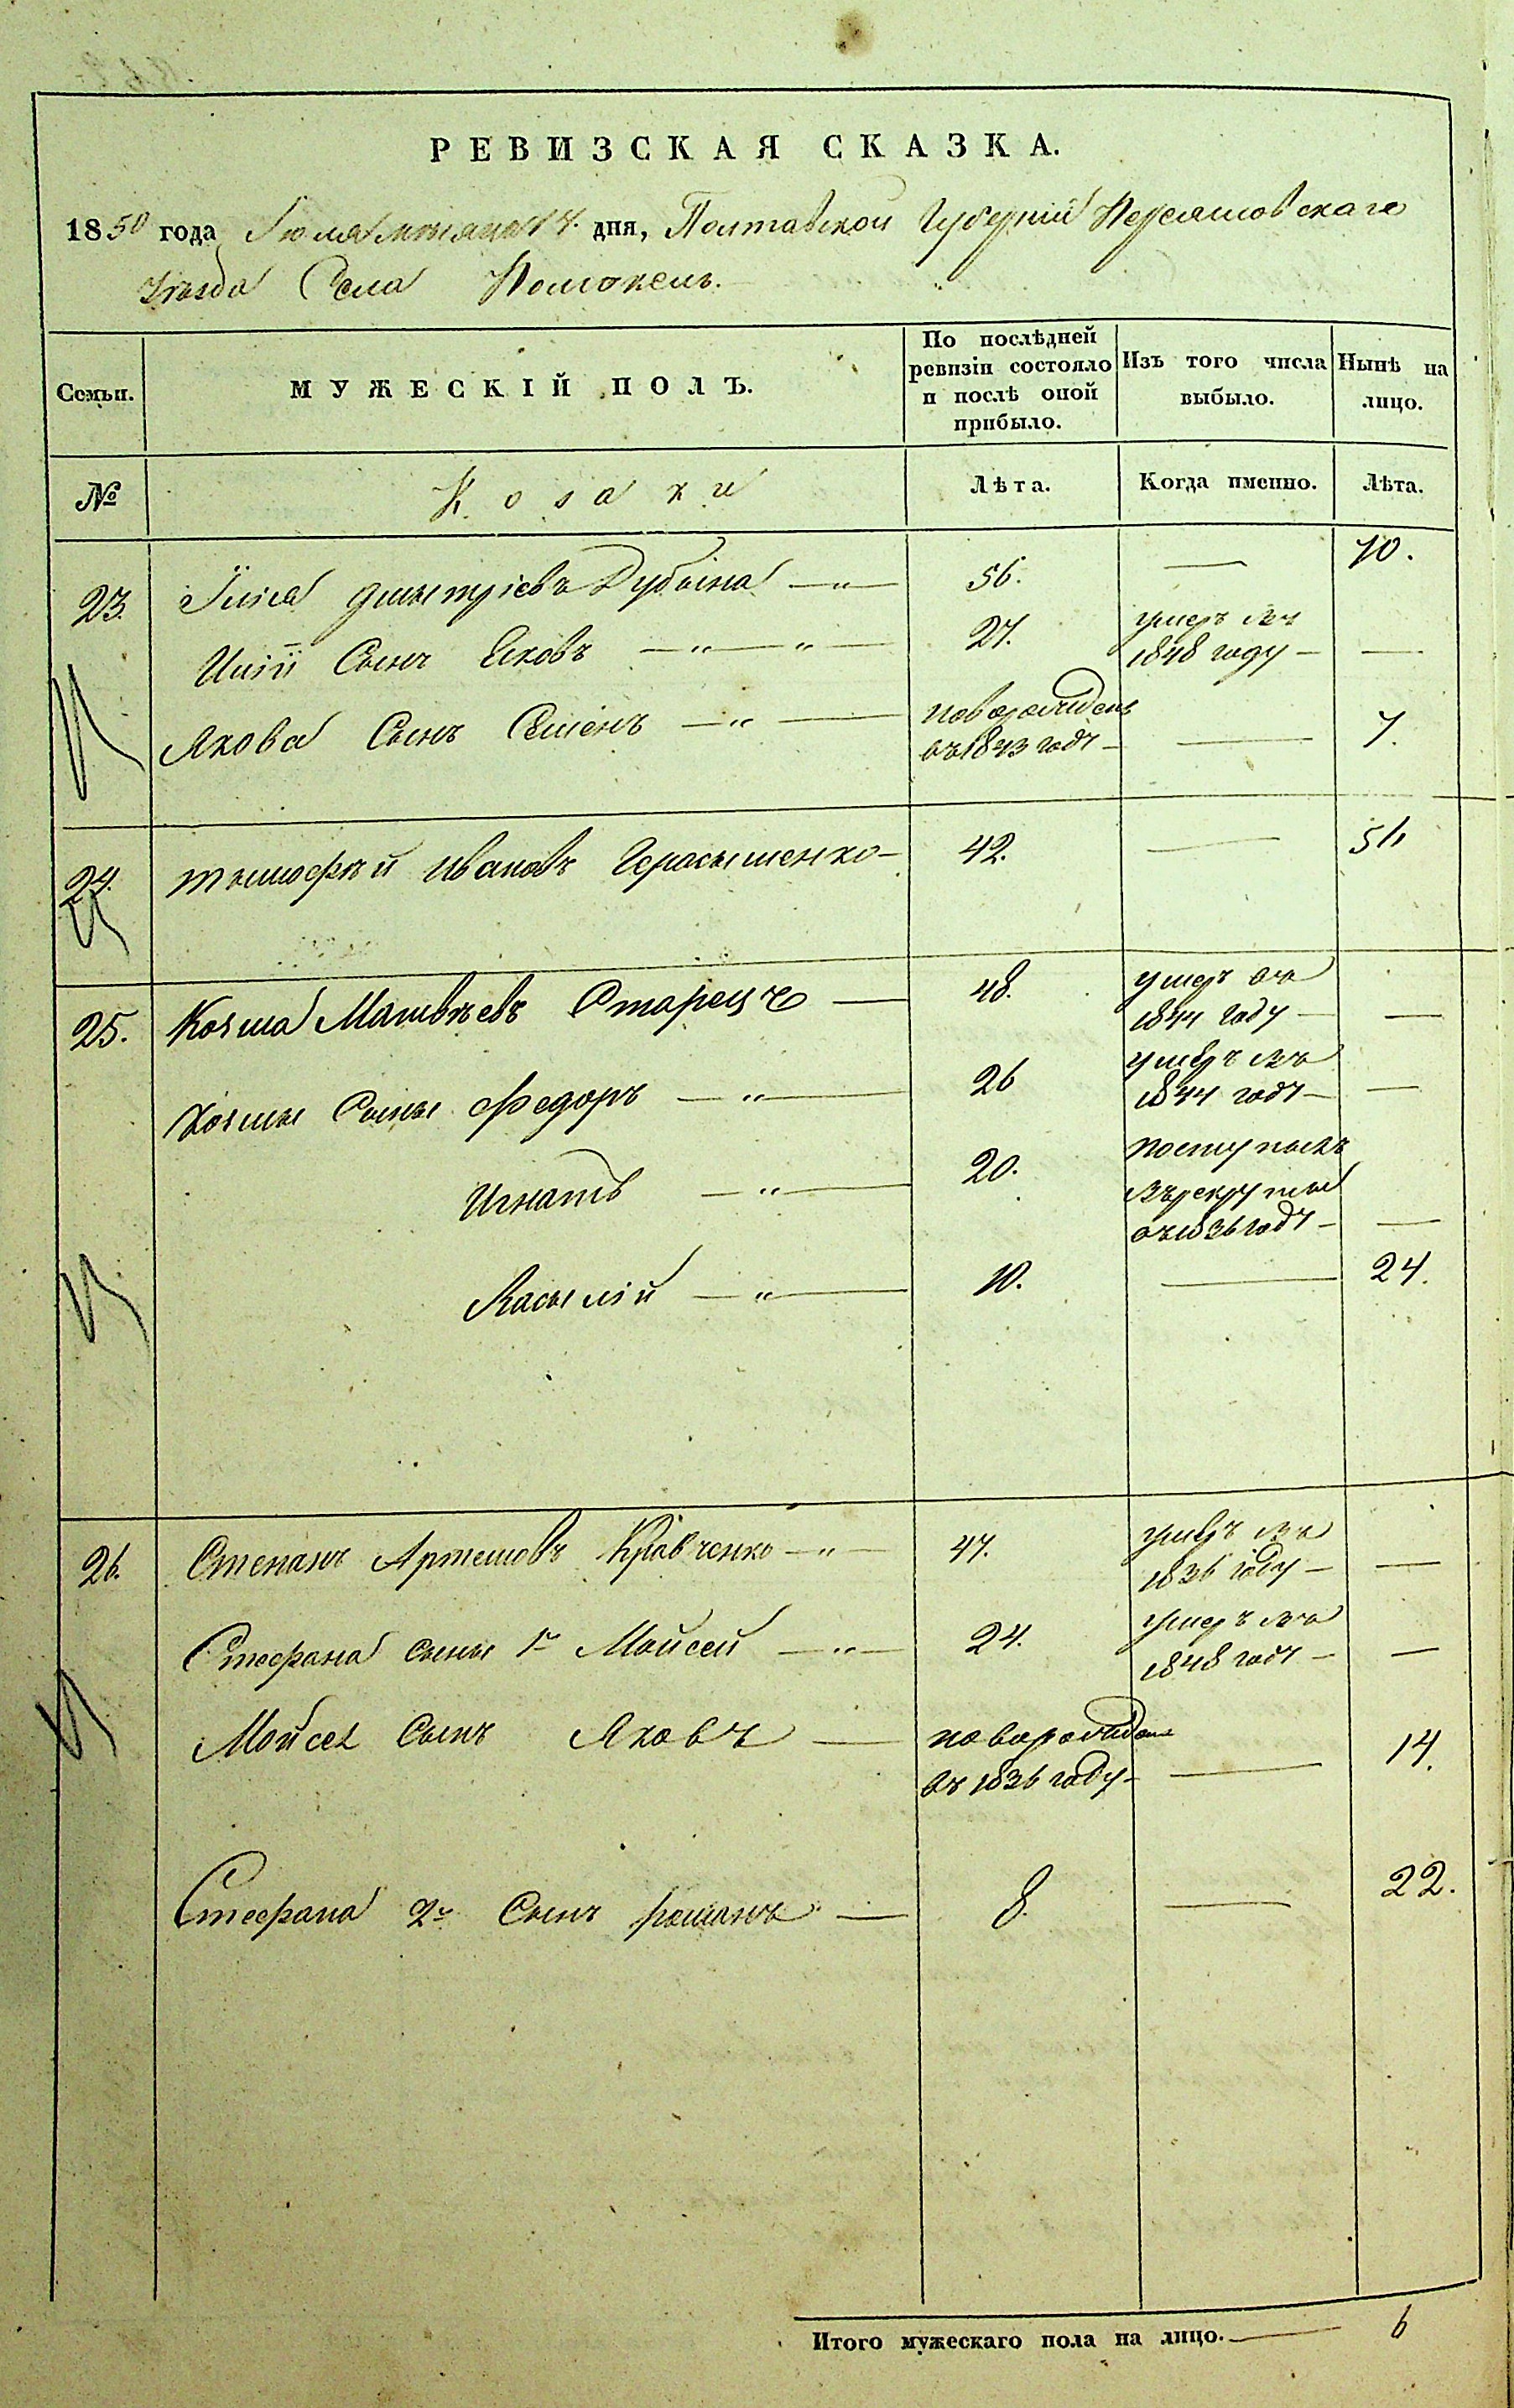 РЕВИЗСКАЯ СКАЗКА.
1850 года Іюля месяца 17. дня, Полтавской Губерніи Переяшовскаго
Уѣзда Села Помокель.
Семьи.
МУЖЕСКІЙ ПОЛЪ.
По послѣдней ревизіи состояло и послѣ оной прибыло.
Изъ того числа выбыло.
Нынѣ на лицо.
№
Козаки
Лѣта.
Когда именно.
Лѣта.
23. Дмытріевъ Дубына — 56. — 70.
Сынъ Яковъ — 27. умеръ въ 1848 году — —
Якова Сынъ Семенъ — новорожденъ въ 1843 году — — 7.
24. Тымофѣй Ивановъ Герасыменко — 42. — 56
25. Козма Матвѣевъ Старецъ — 48. умеръ въ 1844 году — —
Козмы Сыны Федоръ — 26 умеръ въ 1844 году — —
Игнатъ — 20. поступилъ въ рекруты въ 1836 году — —
Васылій — 10. — 24.
26. Степанъ Артемовъ Кравченко — 47. умеръ въ 1836 году — —
Стефана сыны 1й Мойсей — 24. умеръ въ 1848 году — —
Мойсея Сынъ Яковъ — новорожденъ въ 1836 году — — 14.
Стефана 2й Сынъ романъ — 8. — 22.
Итого мужескаго пола на лицо. — 6